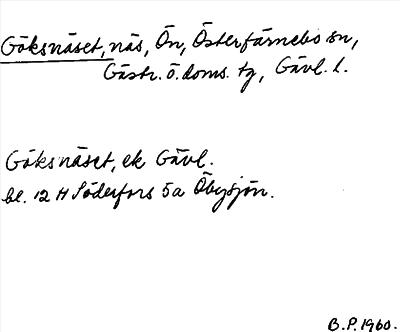 Göksnäset, näs, Ön, Österfärnebo sn,
Gästr. ö. doms. tg, Gävl. l.
Göksnäset, ek Gävl.
bl. 12 H Söderfors 5a Öbysjön.
B.P. 1960.